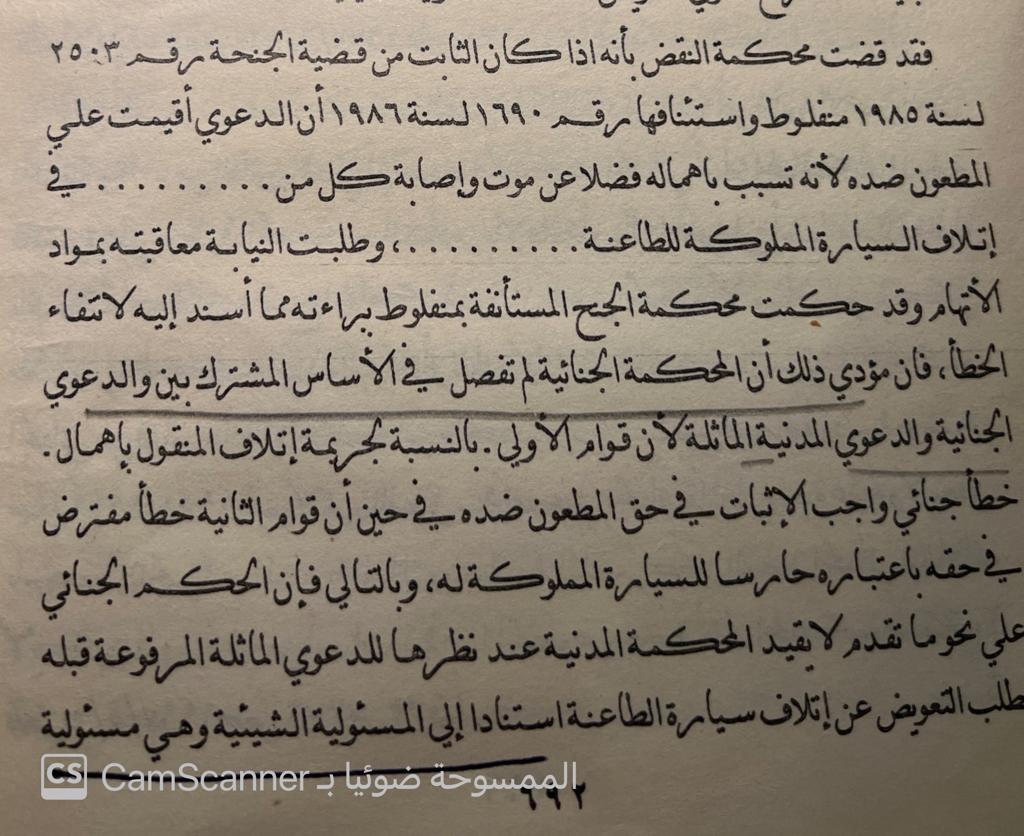 فقد قضت محكمة النقض بأنه اذا كان الثابت من قضية الجنحة رقم ٢٥٠٣
لسنة ١٩٨٥ منفلوط واستئنافها رقم ١٦٩٠ لسنة ١٩٨٦ أن الدعوي أقيمت علي
المطعون ضده لأنه تسبب باهماله فضلا عن موت وإصابة كل من .......... في
إتلاف السيارة المملوكة للطاعنة ..........، وطلبت النيابة معاقبته بمواد
الأتهام وقد حكمت محكمة الجنح المستأنفة بمنفلوط ببراءته مما أسند إليه لانتفاء
الخطأ، فان مؤدي ذلك أن المحكمة الجنائية لم تفصل في الأساس المشترك بين والدعوي
الجنائية والدعوي المدنية الماثلة لأن قوام الأولي . بالنسبة لجريمة إتلاف المنقول بإهمال .
خطأ جنائي واجب الإثبات في حق المطعون ضده في حين أن قوام الثانية خطأ مفترض
في حقه باعتباره حارسا للسيارة المملوكة له، وبالتالي فإن الحكم الجنائي
علي نحو ما تقدم لا يقيد المحكمة المدنية عند نظرها للدعوي الماثلة المرفوعة قبله
طلب التعويض عن إتلاف سيارة الطاعنة استنادا إلي المسئولية الشيئية وهي مسئولية
CS CamScanner الممسوحة ضوئيا بـ
٦٩٢